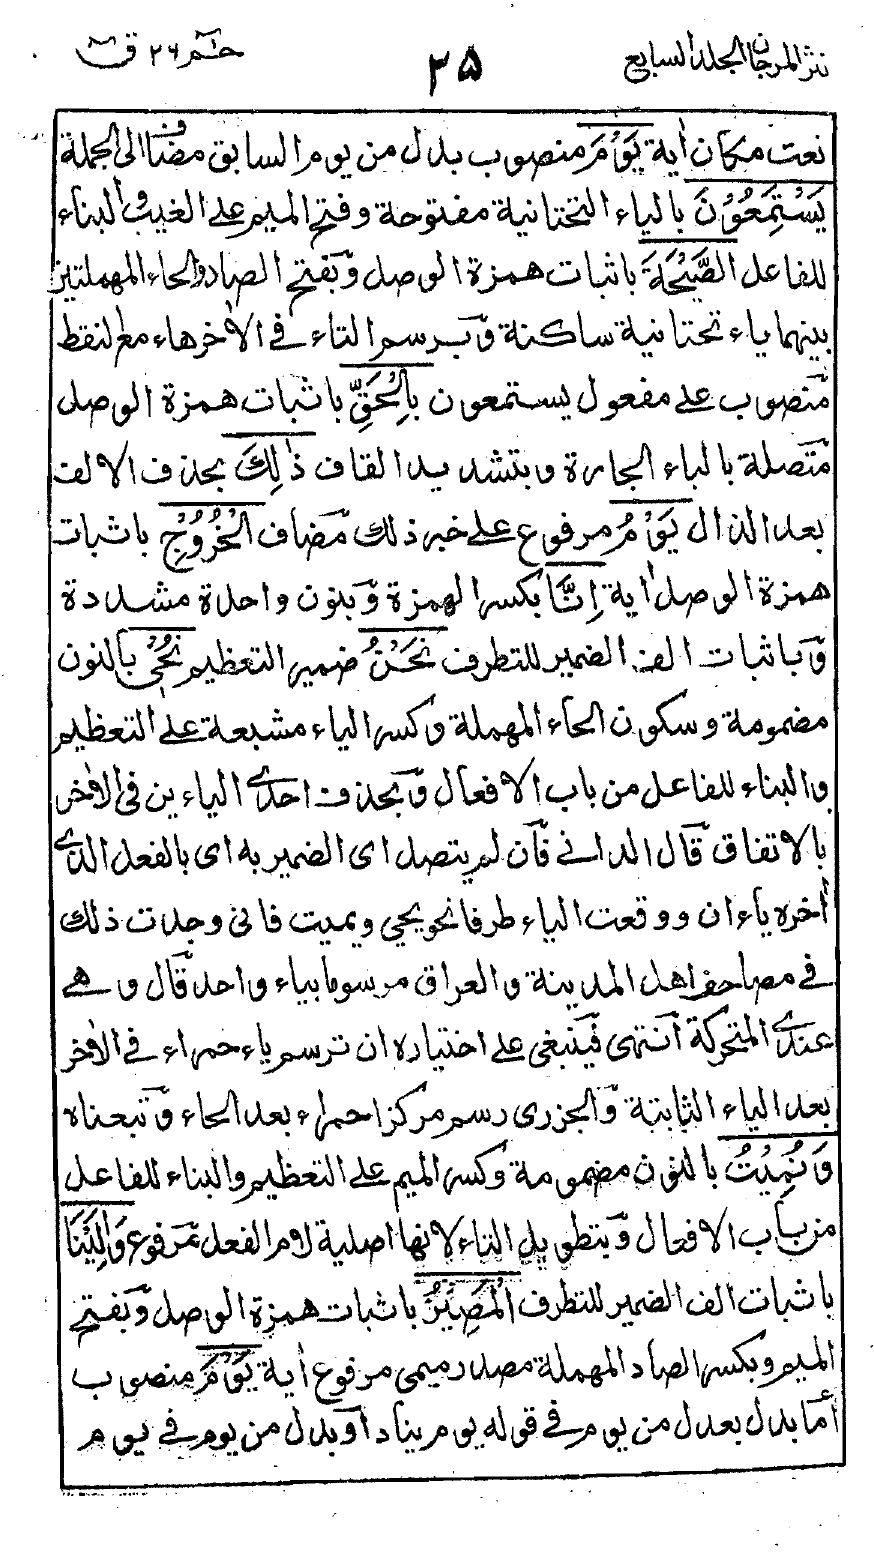 نثر المرجان الجلد السابع
۳۵
حٰمٓ ۲۶ ق
نعت مكان اٰية يَوْمَ منصوب بدل من يوم السابق مضاف الى الجملة
يَسْتَمِعُوْنَ بالياء التحتانية مفتوحة وفتح الميم على الغيب والبناء
للفاعل الصَّيْحَةَ باثبات همزة الوصل وبفتح الصاد والحاء المهملتين
بينهما ياء تحتانية ساكنة وبرسم التاء فى الاٰخر هاء مع النقط
منصوب على مفعول يستمعون بِالْحَقِّ باثبات همزة الوصل
متصلة بالباء الجارة وبتشديد القاف ذٰلِكَ بحذف الالف
بعد الذال يَوْمُ مرفوع على خبر ذلك مضاف الْخُرُوْجِ باثبات
همزة الوصل اٰية اِنَّا بكسر الهمزة وبنون واحدة مشددة
وباثبات الف الضمير للتطرف نَحْنُ ضمير التعظيم نُحْيٖ بالنون
مضمومة وسكون الحاء المهملة وكسر الياء مشبعة على التعظيم
والبناء للفاعل من باب الافعال وبحذف احدى الياءين فى الاٰخر
بالاتفاق قال الدانى فان لم يتصل اى الضمير به اى بالفعل الذى
اٰخره ياءان ووقعت الياء طرفا نحو يحيى ويميت فانى وجدت ذلك
فى مصاحف اهل المدينة والعراق مرسوما بياء واحد قال وهى
عندى المتحركة انتهى فينبغى على اختياره ان ترسم ياء حمراء فى الاٰخر
بعد الياء الثابتة والجزرى رسم مركزا حمراء بعد الحاء وتبعناه
وَنُمِيْتُ بالنون مضمومة وكسر الميم على التعظيم والبناء للفاعل
من باب الافعال وبتطويل التاء لانها اصلية لام الفعل مرفوع وَاِلَيْنَا
باثبات الف الضمير للتطرف الْمَصِيْرُ باثبات همزة الوصل وبفتح
الميم وبكسر الصاد المهملة مصدر ميمى مرفوع اٰية يَوْمَ منصوب
اما بدل بعد بدل من يوم فى قوله يوم يناد او بدل من يوم فى يوم